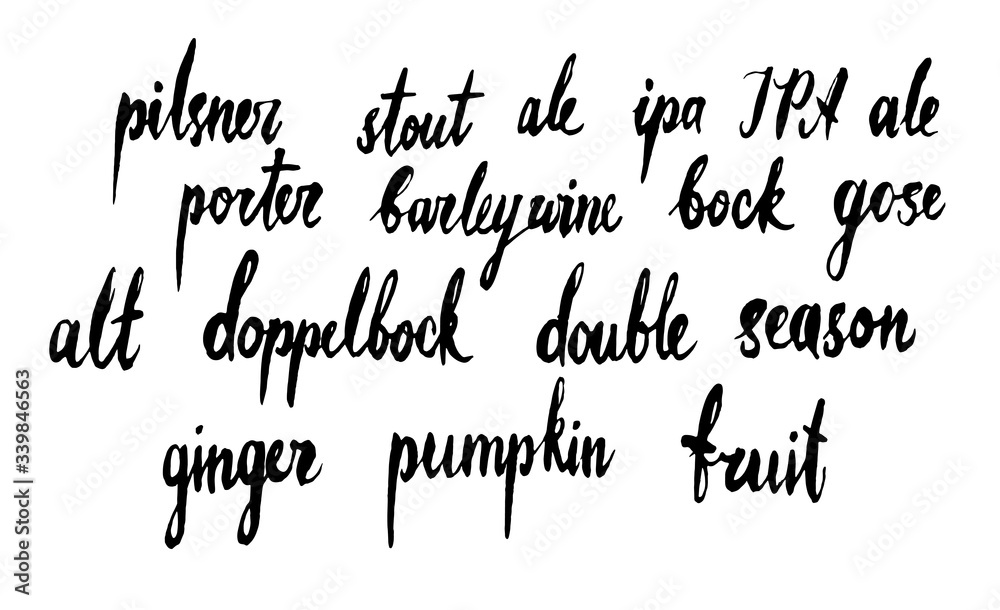 pilsner stout ale ipa IPA ale
porter barleywine bock gose
alt doppelbock double season
ginger pumpkin fruit
Adobe Stock | #339846563